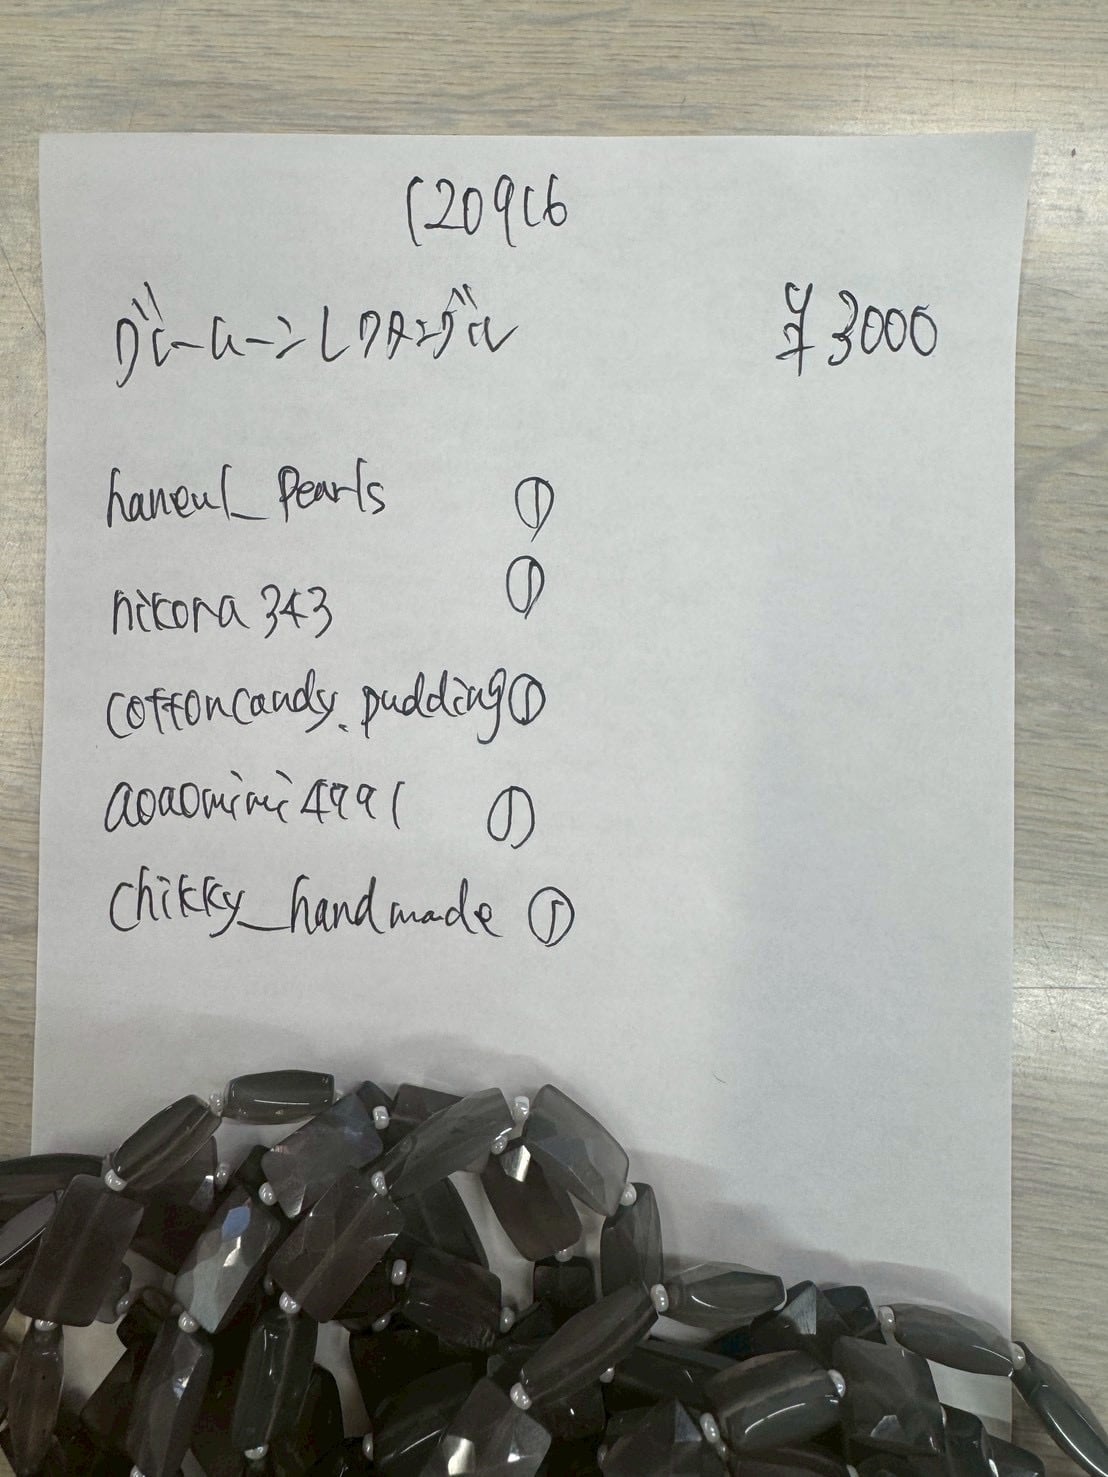 120916
グレームーンレクタングル ¥3000
haneul_pearls ①
nikora343 ①
cottoncandy.pudding ①
aoaomimi4991 ①
chikky_handmade ①